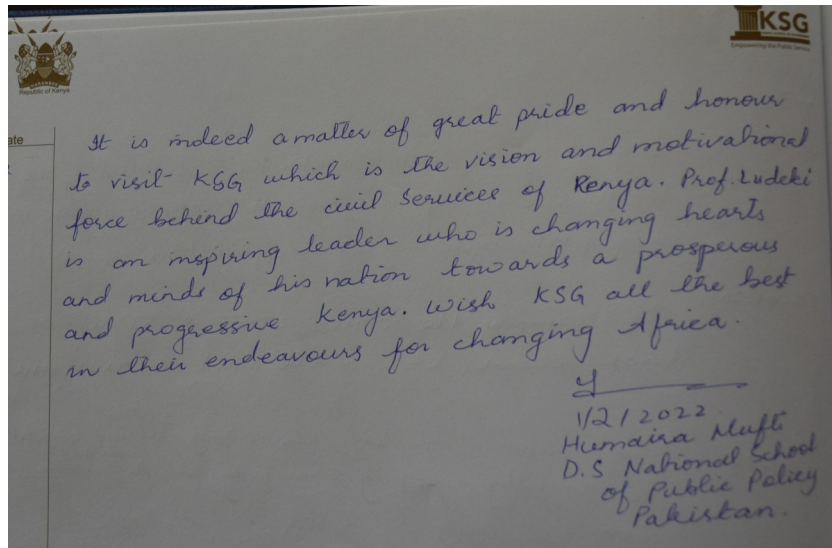 KSG
Empowering the Public Service
Republic of Kenya
ate
It is indeed a matter of great pride and honour
to visit KSG which is the vision and motivational
force behind the civil Services of Kenya. Prof. Ludeki
is an inspiring leader who is changing hearts
and minds of his nation towards a prosperous
and progressive Kenya. Wish KSG all the best
in their endeavours for changing Africa.
1/2/2022
Humaira Mufti
D.S National School
of Public Policy
Pakistan.